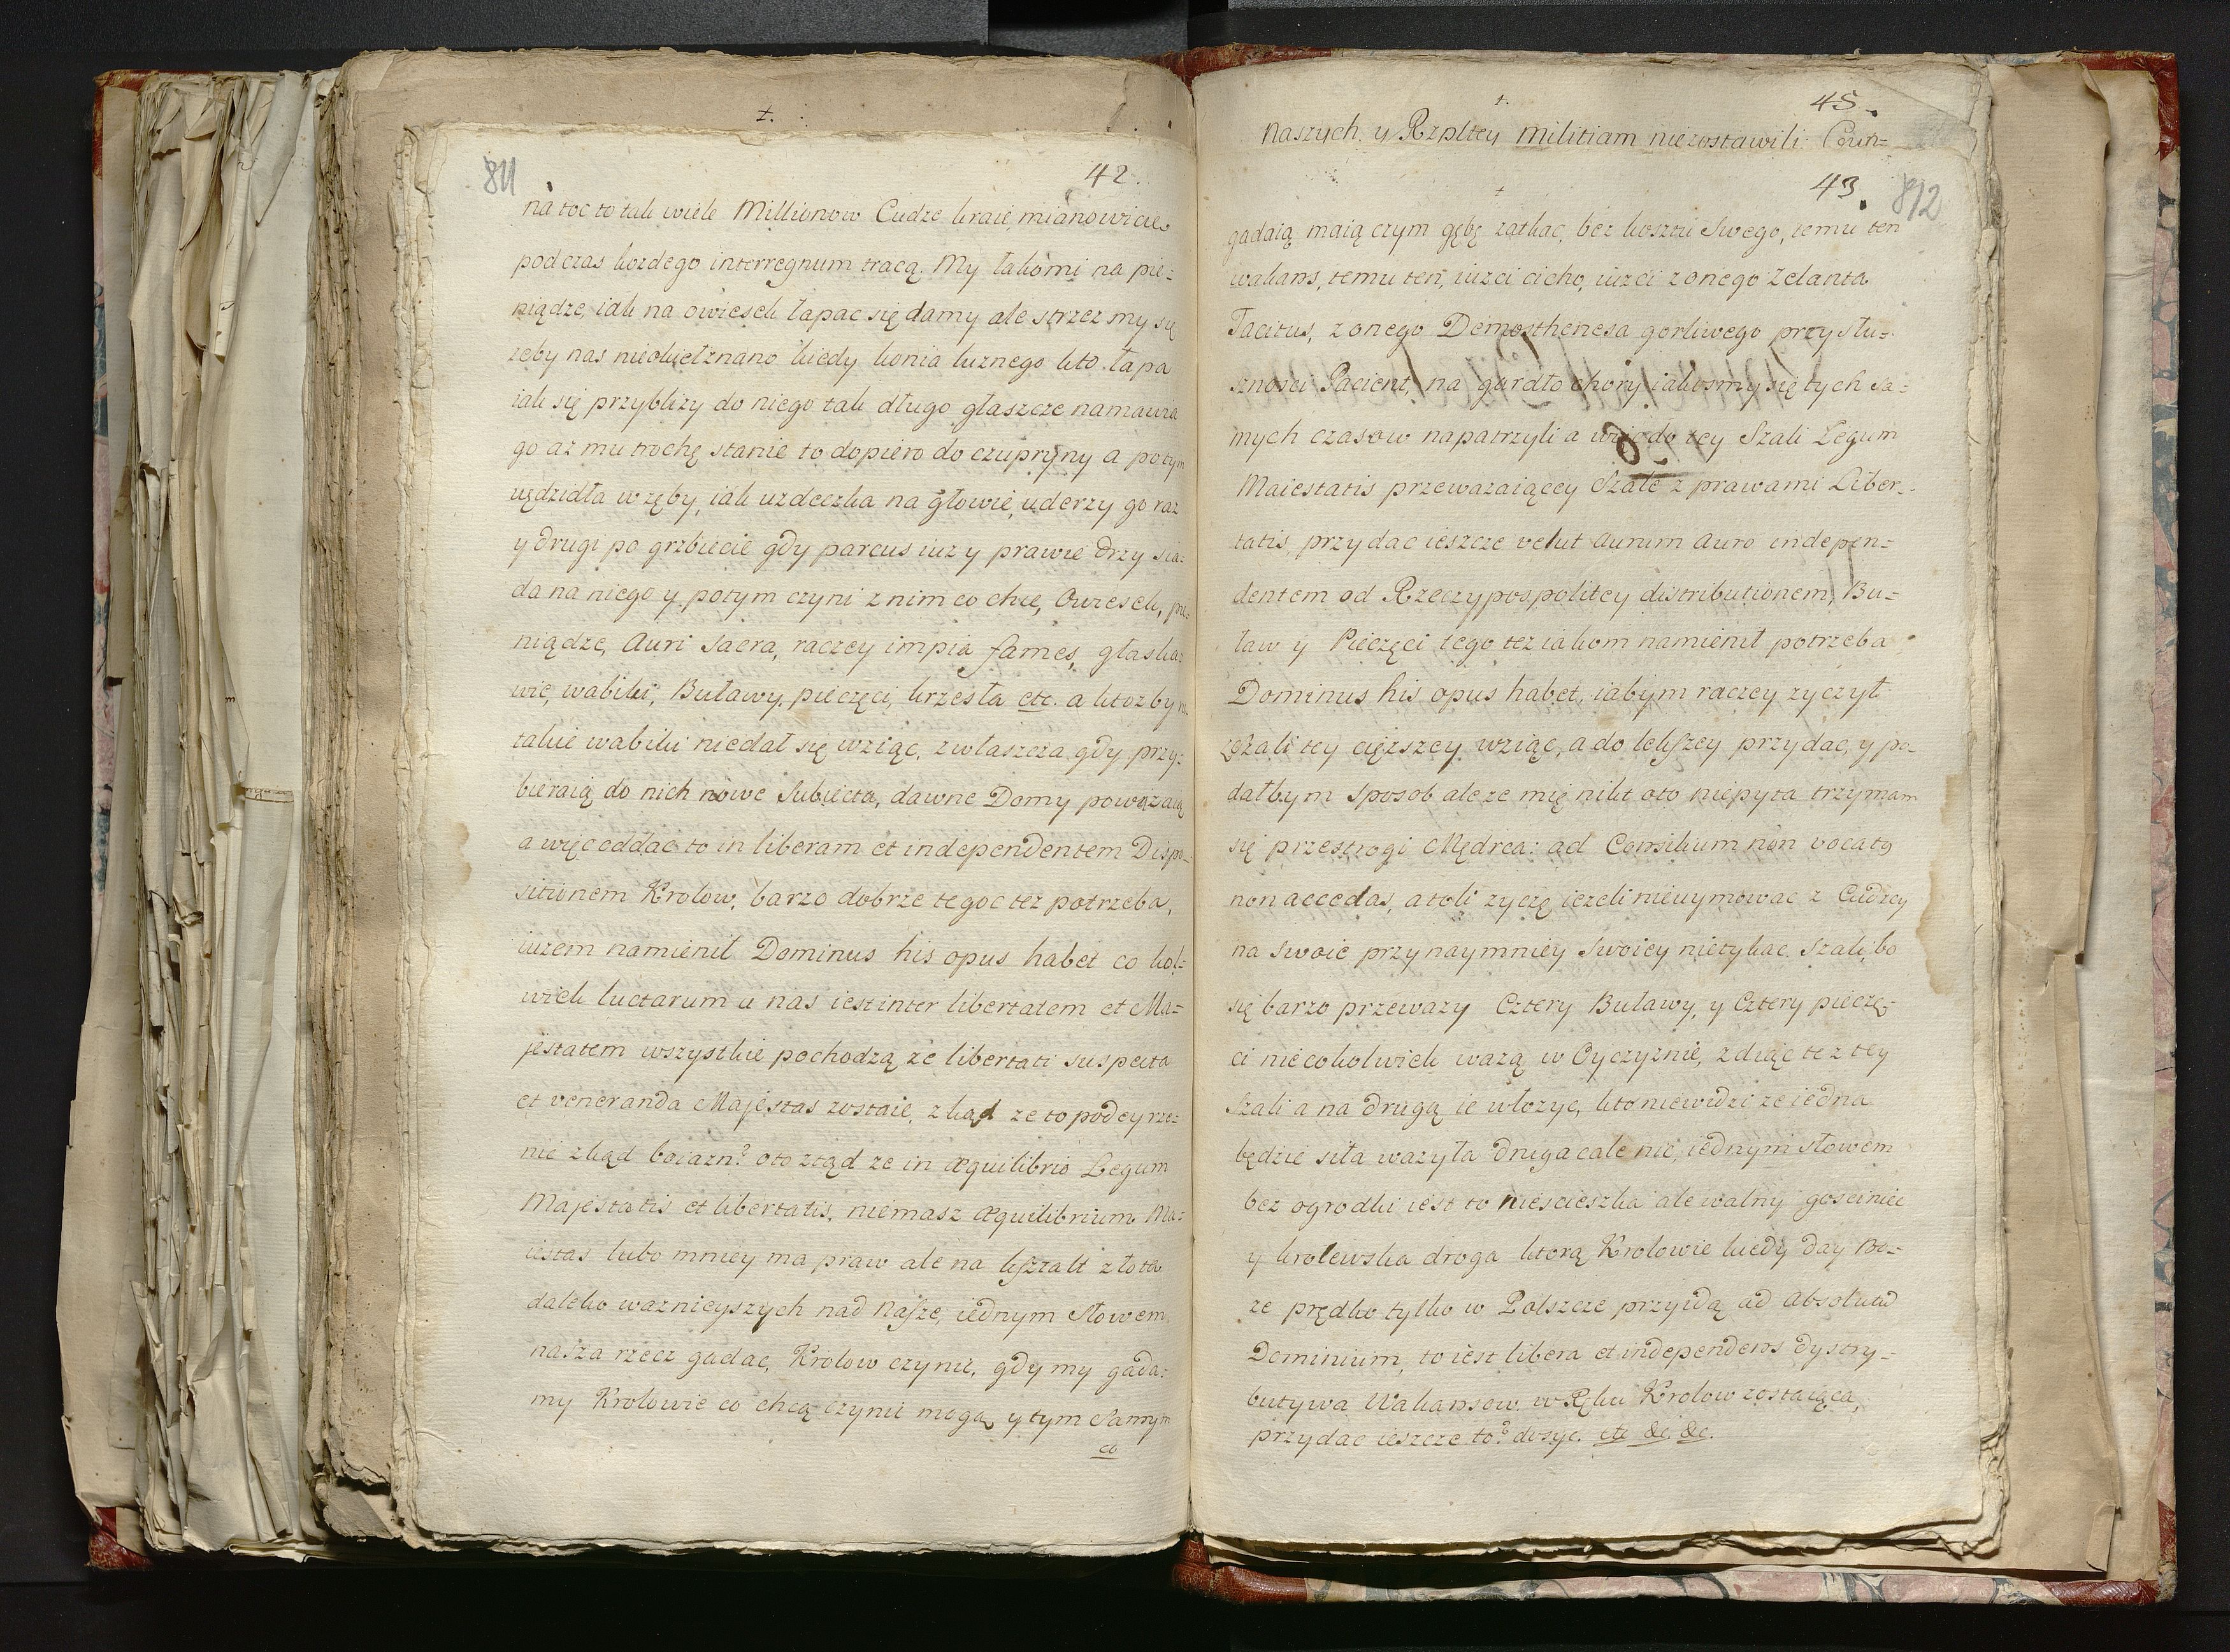 ‡.
811
42.
na toc to tak wiele Millionow Cudze kraie, mianowicie
podczas kozdego interregnum tracą. My łakomi na pie=
niądze, iak na owiesek łapac się damy ale strzez my się
zeby nas nieokiełznano kiedy konia luznego kto łapa
iak się przyblizy do niego tak długo głaszcze namawia
go az mu trochę stanie to dopiero do czupryny a potym
wędzidła w zęby, iak uzdeczka na głowie, uderzy go raz
y drugi po grzbiecie gdy parcus iuz y prawie drzy sia=
da na niego y potym czyni z nim co chce, Owiesek, pie=
niądze, Auri Sacra, raczey impia fames, głaska=
nie, wabiki, Buławy, pieczęci, krzesła etc. a ktozby na
takie wabiki niedał się wziąc, zwłaszcza gdy przy=
bieraią do nich nowe Subiecta, dawne Domy powazaią
a więc oddac to in liberam et independentem Dispo=
sitionem Krolow, barzo dobrze tegoc tez potrzeba,
iuzem namienił Dominus his opus habet co kol=
wiek luctarum u nas iest inter libertatem et Ma=
jestatem wszystkie pochodzą ze libertati suspecta
et veneranda Majestas zostaie, zkąd ze to podeyrze=
nie zkąd boiazn? oto ztąd ze in æquilibrio Legum
Majestatis et libertatis, niemasz æquilibrium Ma=
iestas lubo mniey ma praw ale na kształt złota
daleko waznieyszych nad nasze, iednym Słowem
nasza rzecz gadac, Krolow czynic, gdy my gada=
my Krolowie co chcą czynic mogą y tym Samym
co
‡.
45.
Naszych y Rzpltey militiam niezostawili. Coun=
43.
812
gadaią maią czym gębę zatkac, bez kosztu Swego, temu ten
wakans, temu ten, iuzci cicho, iuzci z onego Zelanta
Tacitus, z onego Demosthenesa gorliwego przy słu=
sznosci Pacient, na gardło chory iakosmy się tych sa=
mych czasow napatrzyli a więc do tey Szali Legum
Maiestatis przewazaiącey Szale z prawami Liber=
tatis, przydac ieszcze velut Aurum Auro indepen=
dentem od Rzeczypospolitey distributionem, Bu=
ław y Pieczęci tego tez iakom namienił potrzeba
Dominus his opus habet, iabym raczey zyczył
z Szali tey cięzszey wziąc, a do lekszey przydac, y po=
dałbym Sposob ale ze mię nikt oto niepyta trzymam
się przestrogi Mędrca: ad Consilium non vocatg
non accedas, atoli zyczę iezeli nieuymowac z Cudzey
na Swoie przynaymniey Swoiey nietykac Szali, bo
się barzo przewazy Cztery Buławy, y Cztery pieczę=
ci niecokolwiek wazą w Oyczyznie, zdiąc te z tey
Szali a na drugą ie włozyc, kto niewidzi ze iedna
będzie siła wazyła druga cale nic, iednym słowem
bez ogrodki iest to niescieszka ale walny gosciniec
y krolewska droga ktorą Krolowie kiedy day Bo=
ze prędko tylko w Polszcze przyidą ad absolutũ
Dominium, to iest libera et independens dystry=
butywa Wakansow w Ręku Krolow zostaiąca,
przydac ieszcze to? dosyc. etc &c. &c.